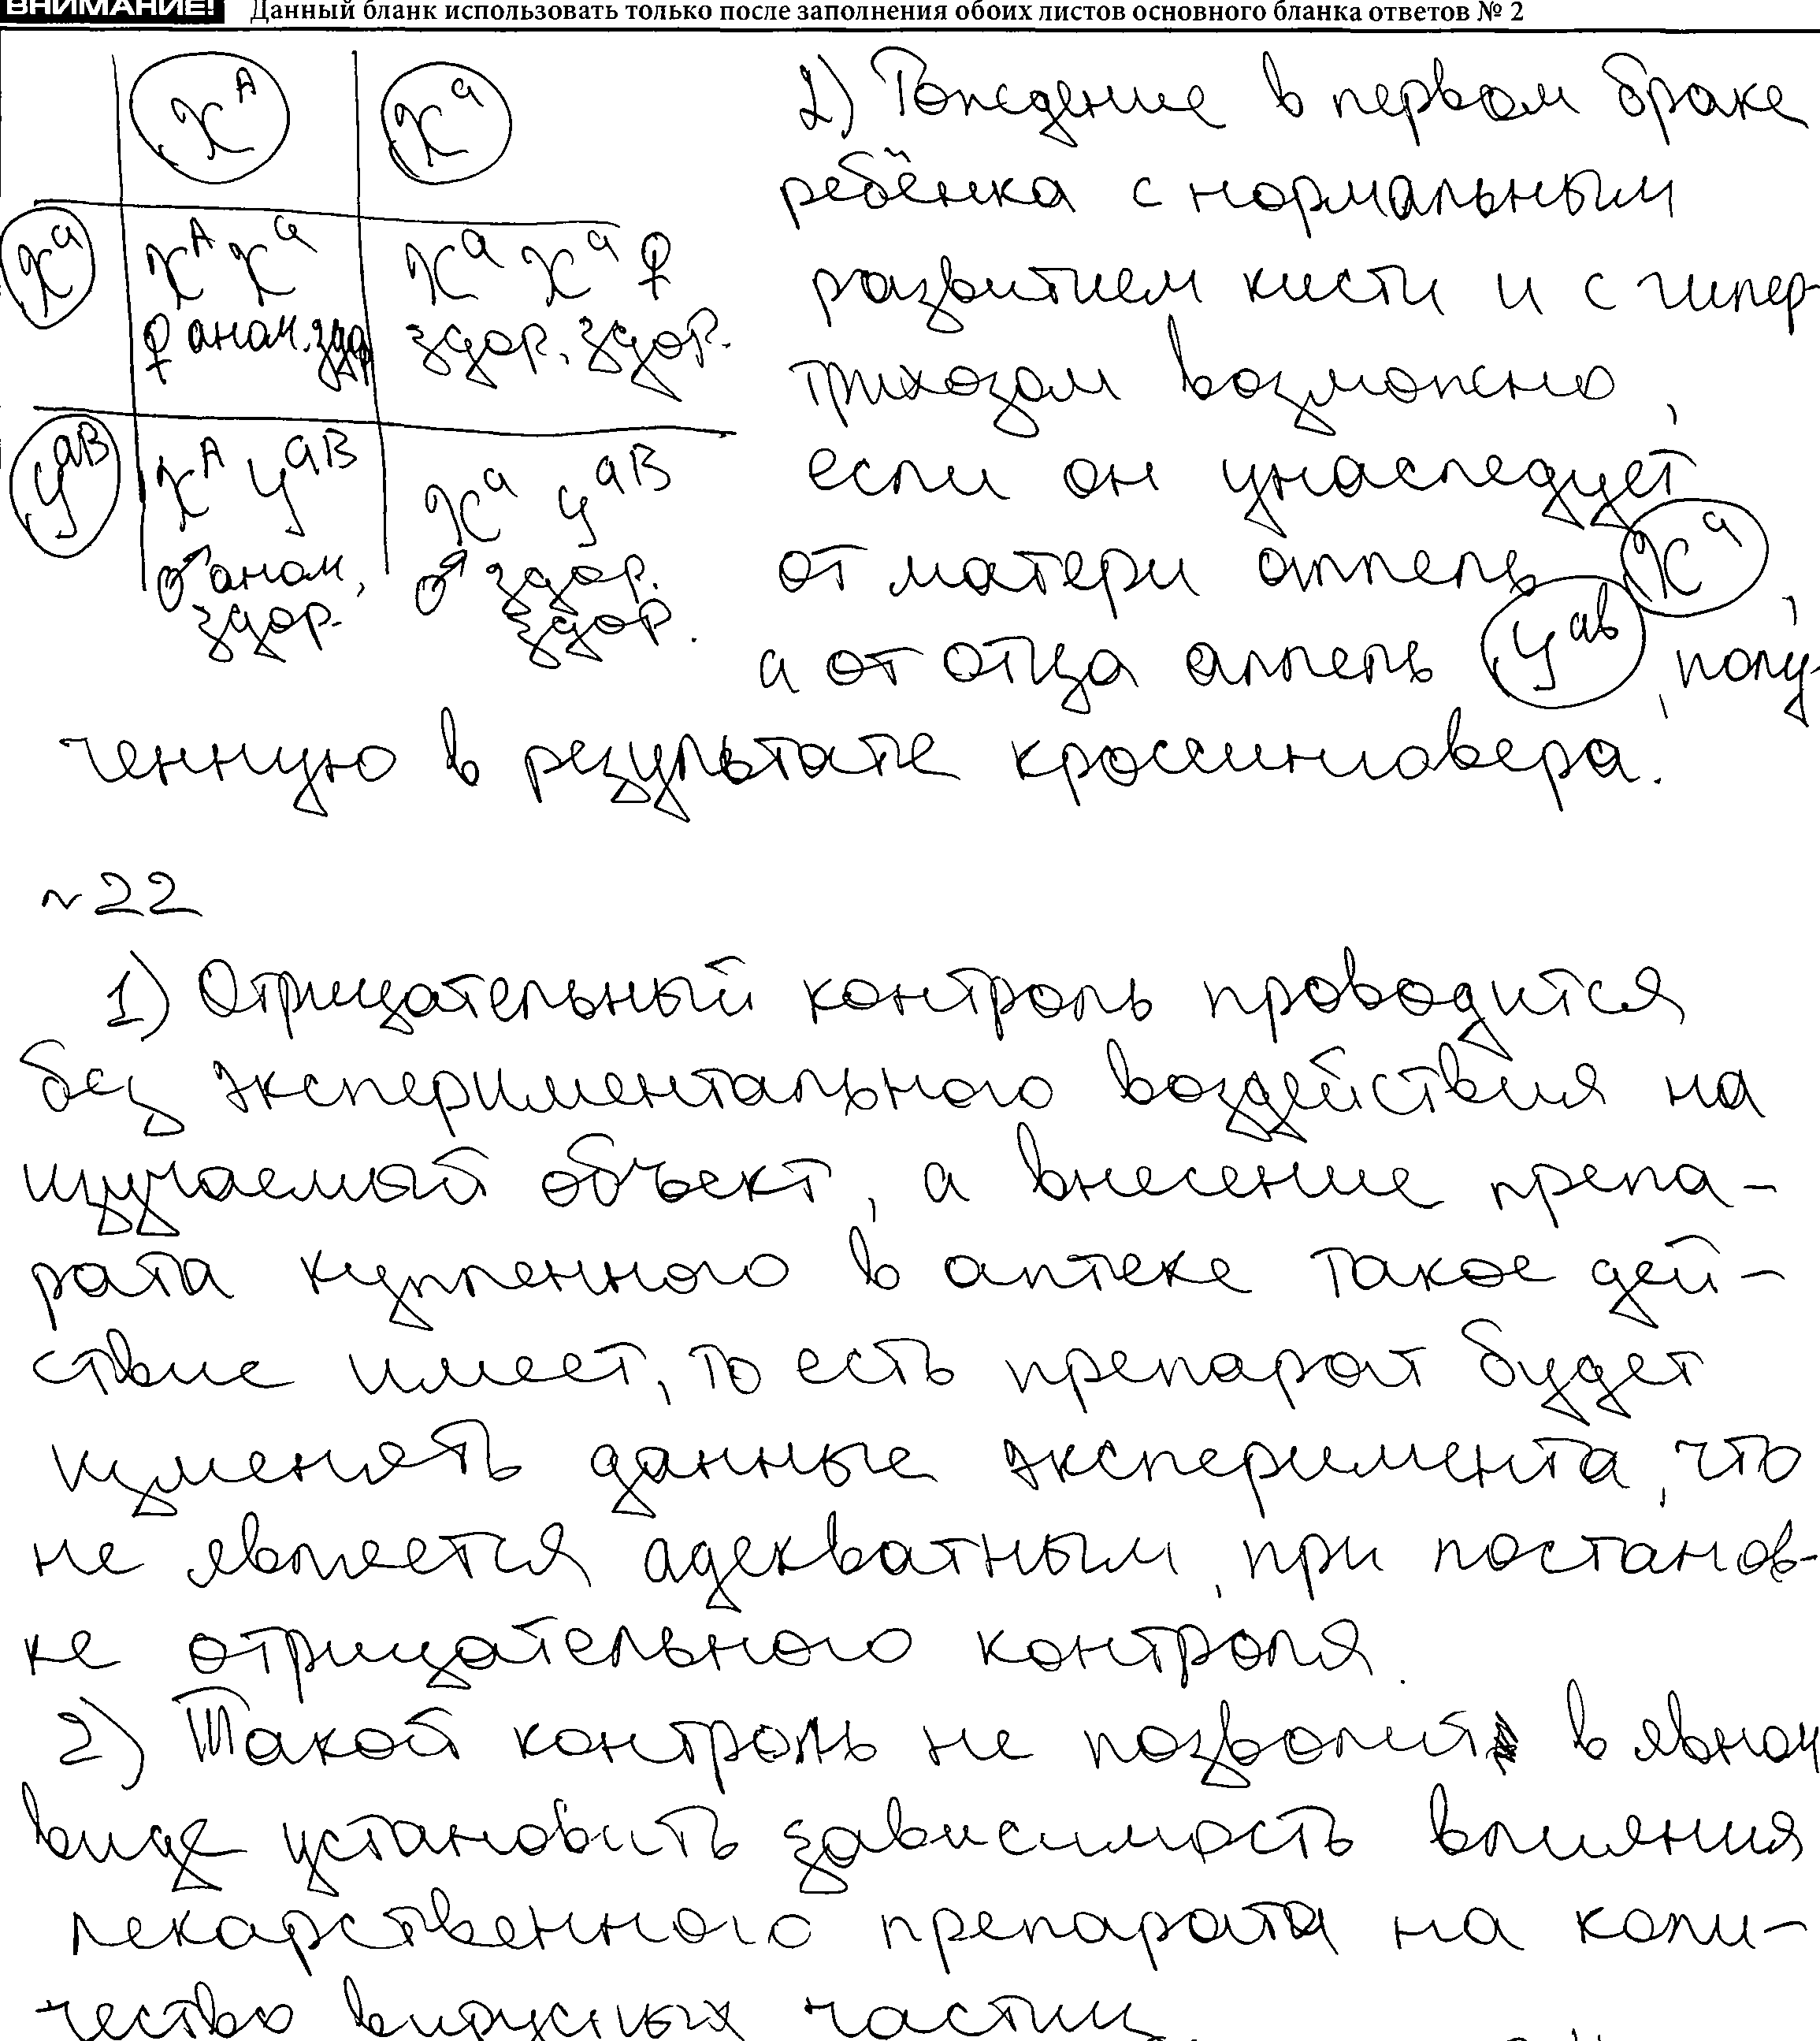 ВНИМАНИЕ! Данный бланк использовать только после заполнения обоих листов основного бланка ответов № 2
X^A X^a
X^a X^A X^a X^a X^a ♀
♀ аном. здор здор. здор.
Y^aB X^A Y^aB X^a Y^aB
♂ аном, ♂ здор.
здор. здор.
2) Рождение в первом браке
ребёнка с нормальным
развитием кисти и с гипер-
трихозом возможно,
если он унаследует
от матери аллель X^a,
а от отца аллель Y^ab, полу-
ченную в результате кроссинговера.
№22
1) Отрицательный контроль проводится
без экспериментального воздействия на
изучаемый объект, а внесение препа-
рата купленного в аптеке такое дей-
ствие имеет, то есть препарат будет
изменять данные эксперимента, что
не является адекватным, при постанов-
ке отрицательного контроля.
2) Такой контроль не позволит в явном
виде установить зависимость влияния
лекарственного препарата на коли-
чество вирусных частиц